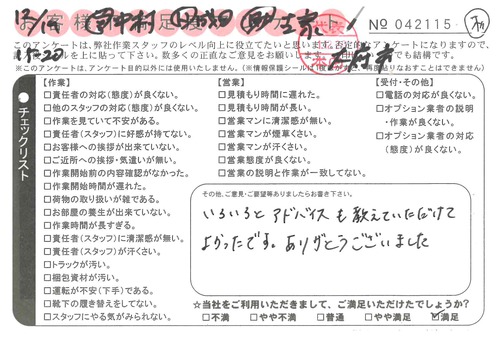 No 042115
このアンケートは、弊社作業スタッフのレベル向上に役立てたいと思います。否定的なアンケートになりますので、
※このアンケートは、アンケート目的以外には使用いたしません。
チェックリスト
【作業】
□責任者の対応(態度)が良くない。
□他のスタッフの対応(態度)が良くない。
□作業を見ていて不安がある。
□責任者(スタッフ)に好感が持てない。
□お客様への挨拶が出来ていない。
□ご近所への挨拶・気遣いが無い。
□作業開始前の内容確認がなかった。
□作業開始時間が遅れた。
□荷物の取り扱いが雑である。
□お部屋の養生が出来ていない。
□作業時間が長すぎる。
□責任者(スタッフ)に清潔感が無い。
□責任者(スタッフ)が汗くさい。
□トラックが汚い。
□梱包資材が汚い。
□運転が不安(下手)である。
□靴下の履き替えをしてない。
□スタッフにやる気がみられない。
【営業】
□見積もり時間に遅れた。
□見積もり時間が長い。
□営業マンに清潔感が無い。
□営業マンが煙草くさい。
□営業マンが汗くさい。
□営業態度が良くない。
□営業の説明と作業が一致してない。
【受付・その他】
□電話の対応が良くない。
□オプション業者の説明
・作業が良くない。
□オプション業者の対応
(態度)が良くない。
その他、ご意見・ご要望等ありましたらお書き下さい。
いろいろと アドバイスも教えていただけて
よかったです。ありがとうございました
☆当社をご利用いただきまして、ご満足いただけたでしょうか?
□不満 □やや不満 □普通 □やや満足 ☑満足